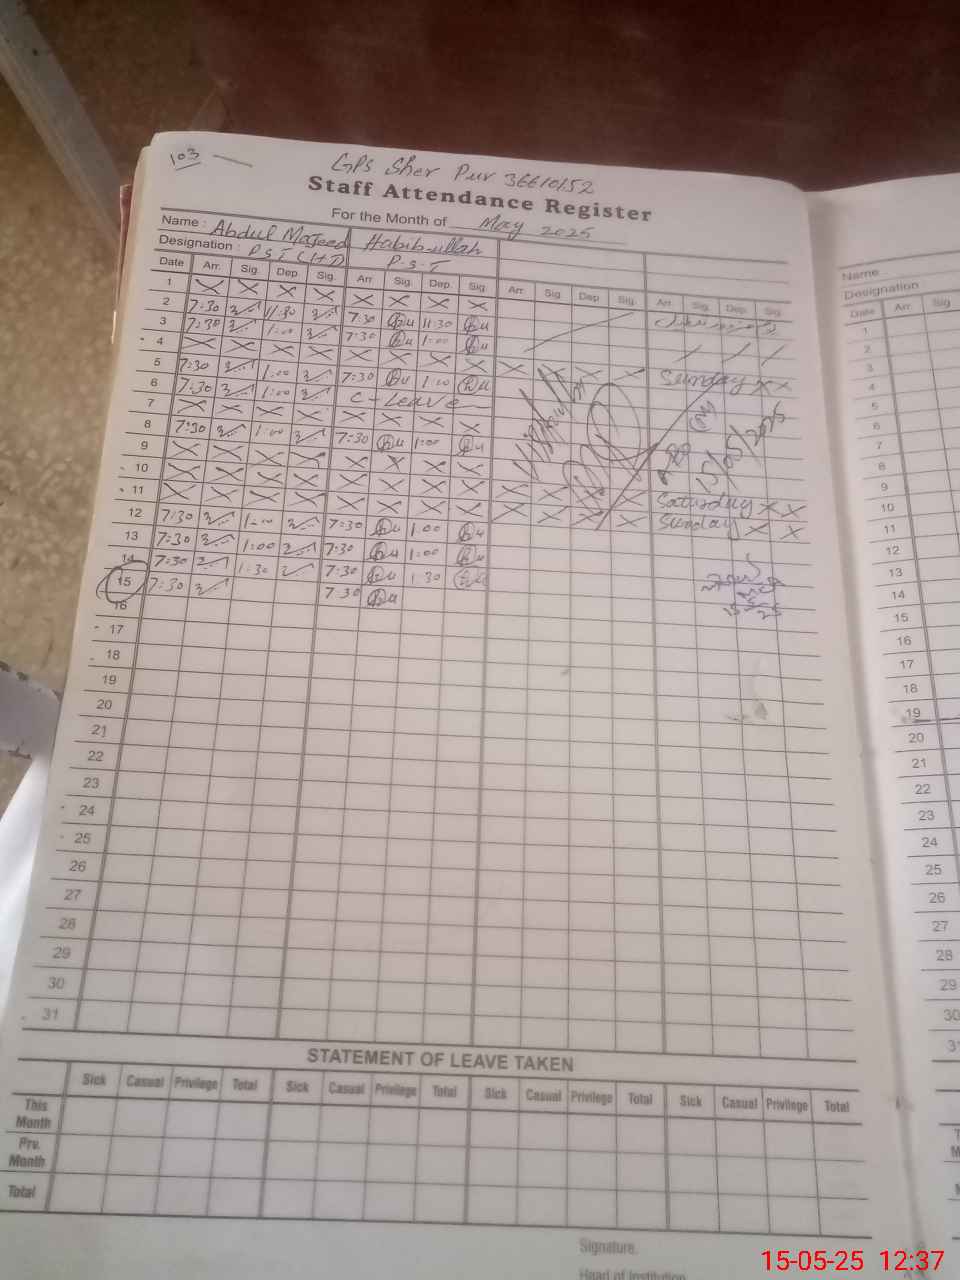 103
GPS Sher Pur 36610152
Staff Attendance Register
For the Month of May 2025
Name : Abdul Majeed Habib-ullah
Designation : PST (HT) P.S.T
Date Arr. Sig. Dep. Sig. Arr. Sig. Dep. Sig. Arr. Sig. Dep. Sig. Arr. Sig. Dep. Sig.
1 X X X X X X X X
2 7:30 11:30 7:30 11:30
3 7:30 1:00 7:30 1:00
4 X X X X X X X X X X X X Sunday X X
5 7:30 1:00 7:30 1:00
6 7:30 1:00 C-Leave
7 X X X X X X X X
8 7:30 1:00 7:30 1:00
9 X X X X X X X X
10 X X X X X X X X X X X X Saturday X X
11 X X X X X X X X X X X X Sunday X X
12 7:30 1:00 7:30 1:00
13 7:30 1:00 7:30 1:00
14 7:30 1:30 7:30 1:30
15 7:30 7:30
15/05/2025
16
17
18
19
20
21
22
23
24
25
26
27
28
29
30
31
STATEMENT OF LEAVE TAKEN
Sick Casual Privilege Total Sick Casual Privilege Total Sick Casual Privilege Total Sick Casual Privilege Total
This Month
Prv. Month
Total
Signature.
Head of Institution
Name
Designation
Date Arr. Sig
1
2
3
4
5
6
7
8
9
10
11
12
13
14
15
16
17
18
19
20
21
22
23
24
25
26
27
28
29
30
15-05-25 12:37